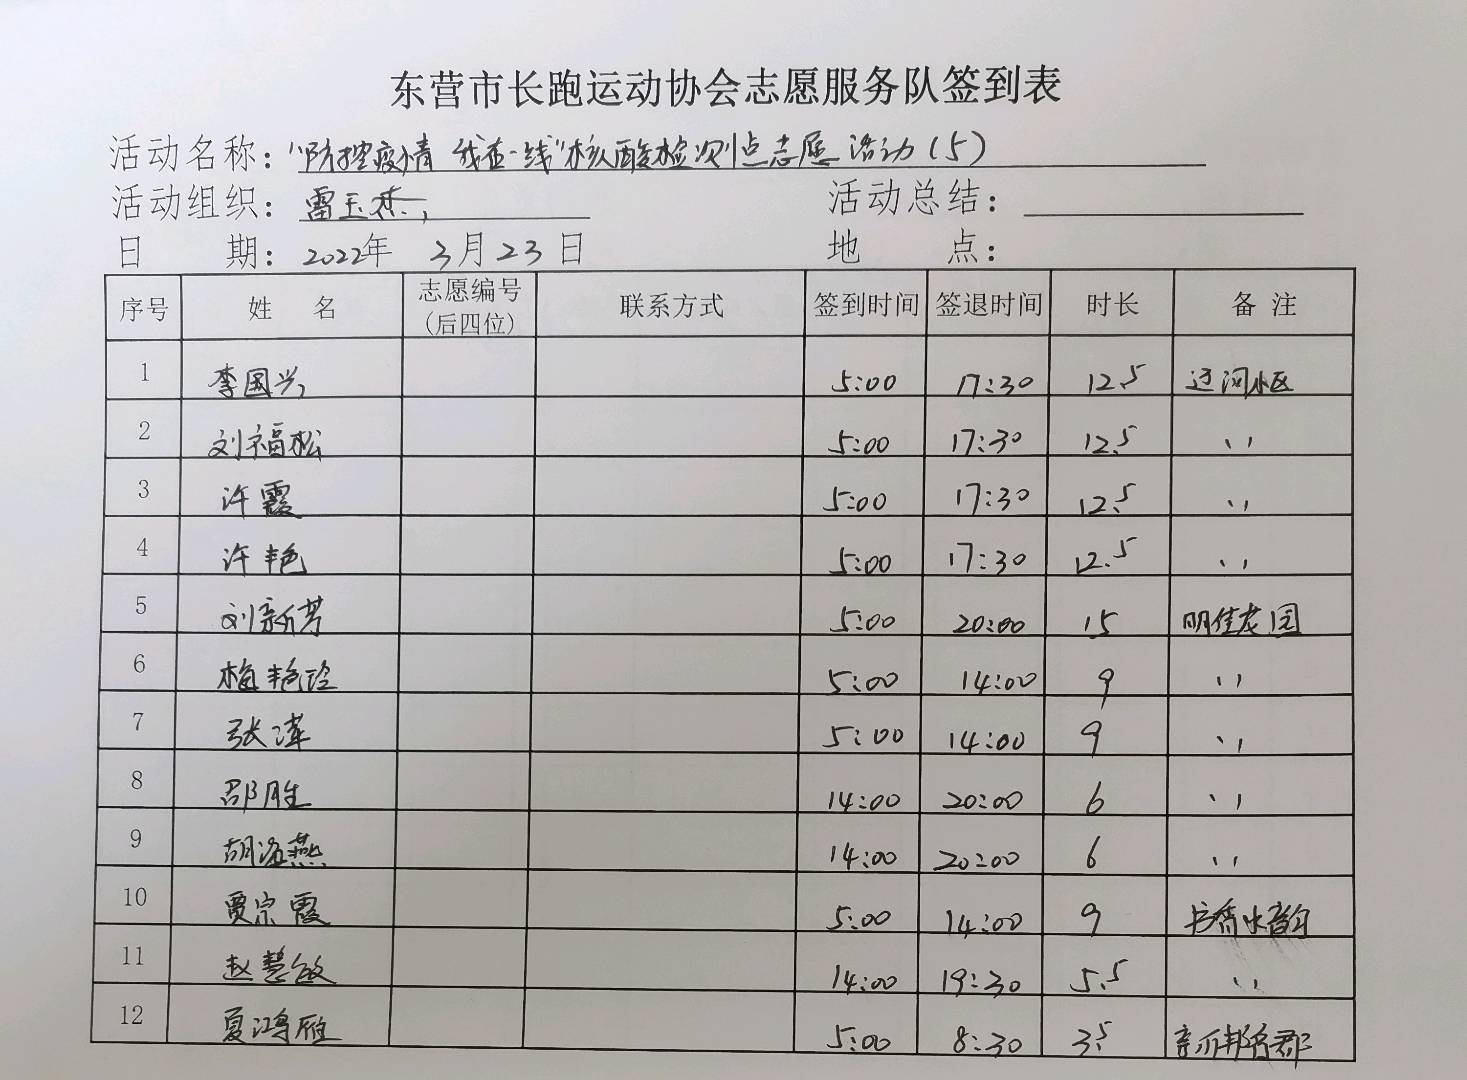 东营市长跑运动协会志愿服务队签到表
活动名称：“防控疫情 我在一线”核酸检测点志愿活动（5）
活动组织：雷玉杰 活动总结：
日 期：2022年 3月23日 地 点：
序号 姓 名 志愿编号（后四位） 联系方式 签到时间 签退时间 时长 备 注
1 李国兴 5:00 17:30 12.5 辽河小区
2 刘福松 5:00 17:30 12.5 ''
3 许霞 5:00 17:30 12.5 ''
4 许艳 5:00 17:30 12.5 ''
5 刘新芳 5:00 20:00 15 明佳花园
6 梅艳玲 5:00 14:00 9 ''
7 张萍 5:00 14:00 9 ''
8 邵胜 14:00 20:00 6 ''
9 胡海燕 14:00 20:00 6 ''
10 贾宗霞 5:00 14:00 9 水韵
11 赵慧敏 14:00 19:30 5.5 ''
12 夏鸿雁 5:00 8:30 3.5